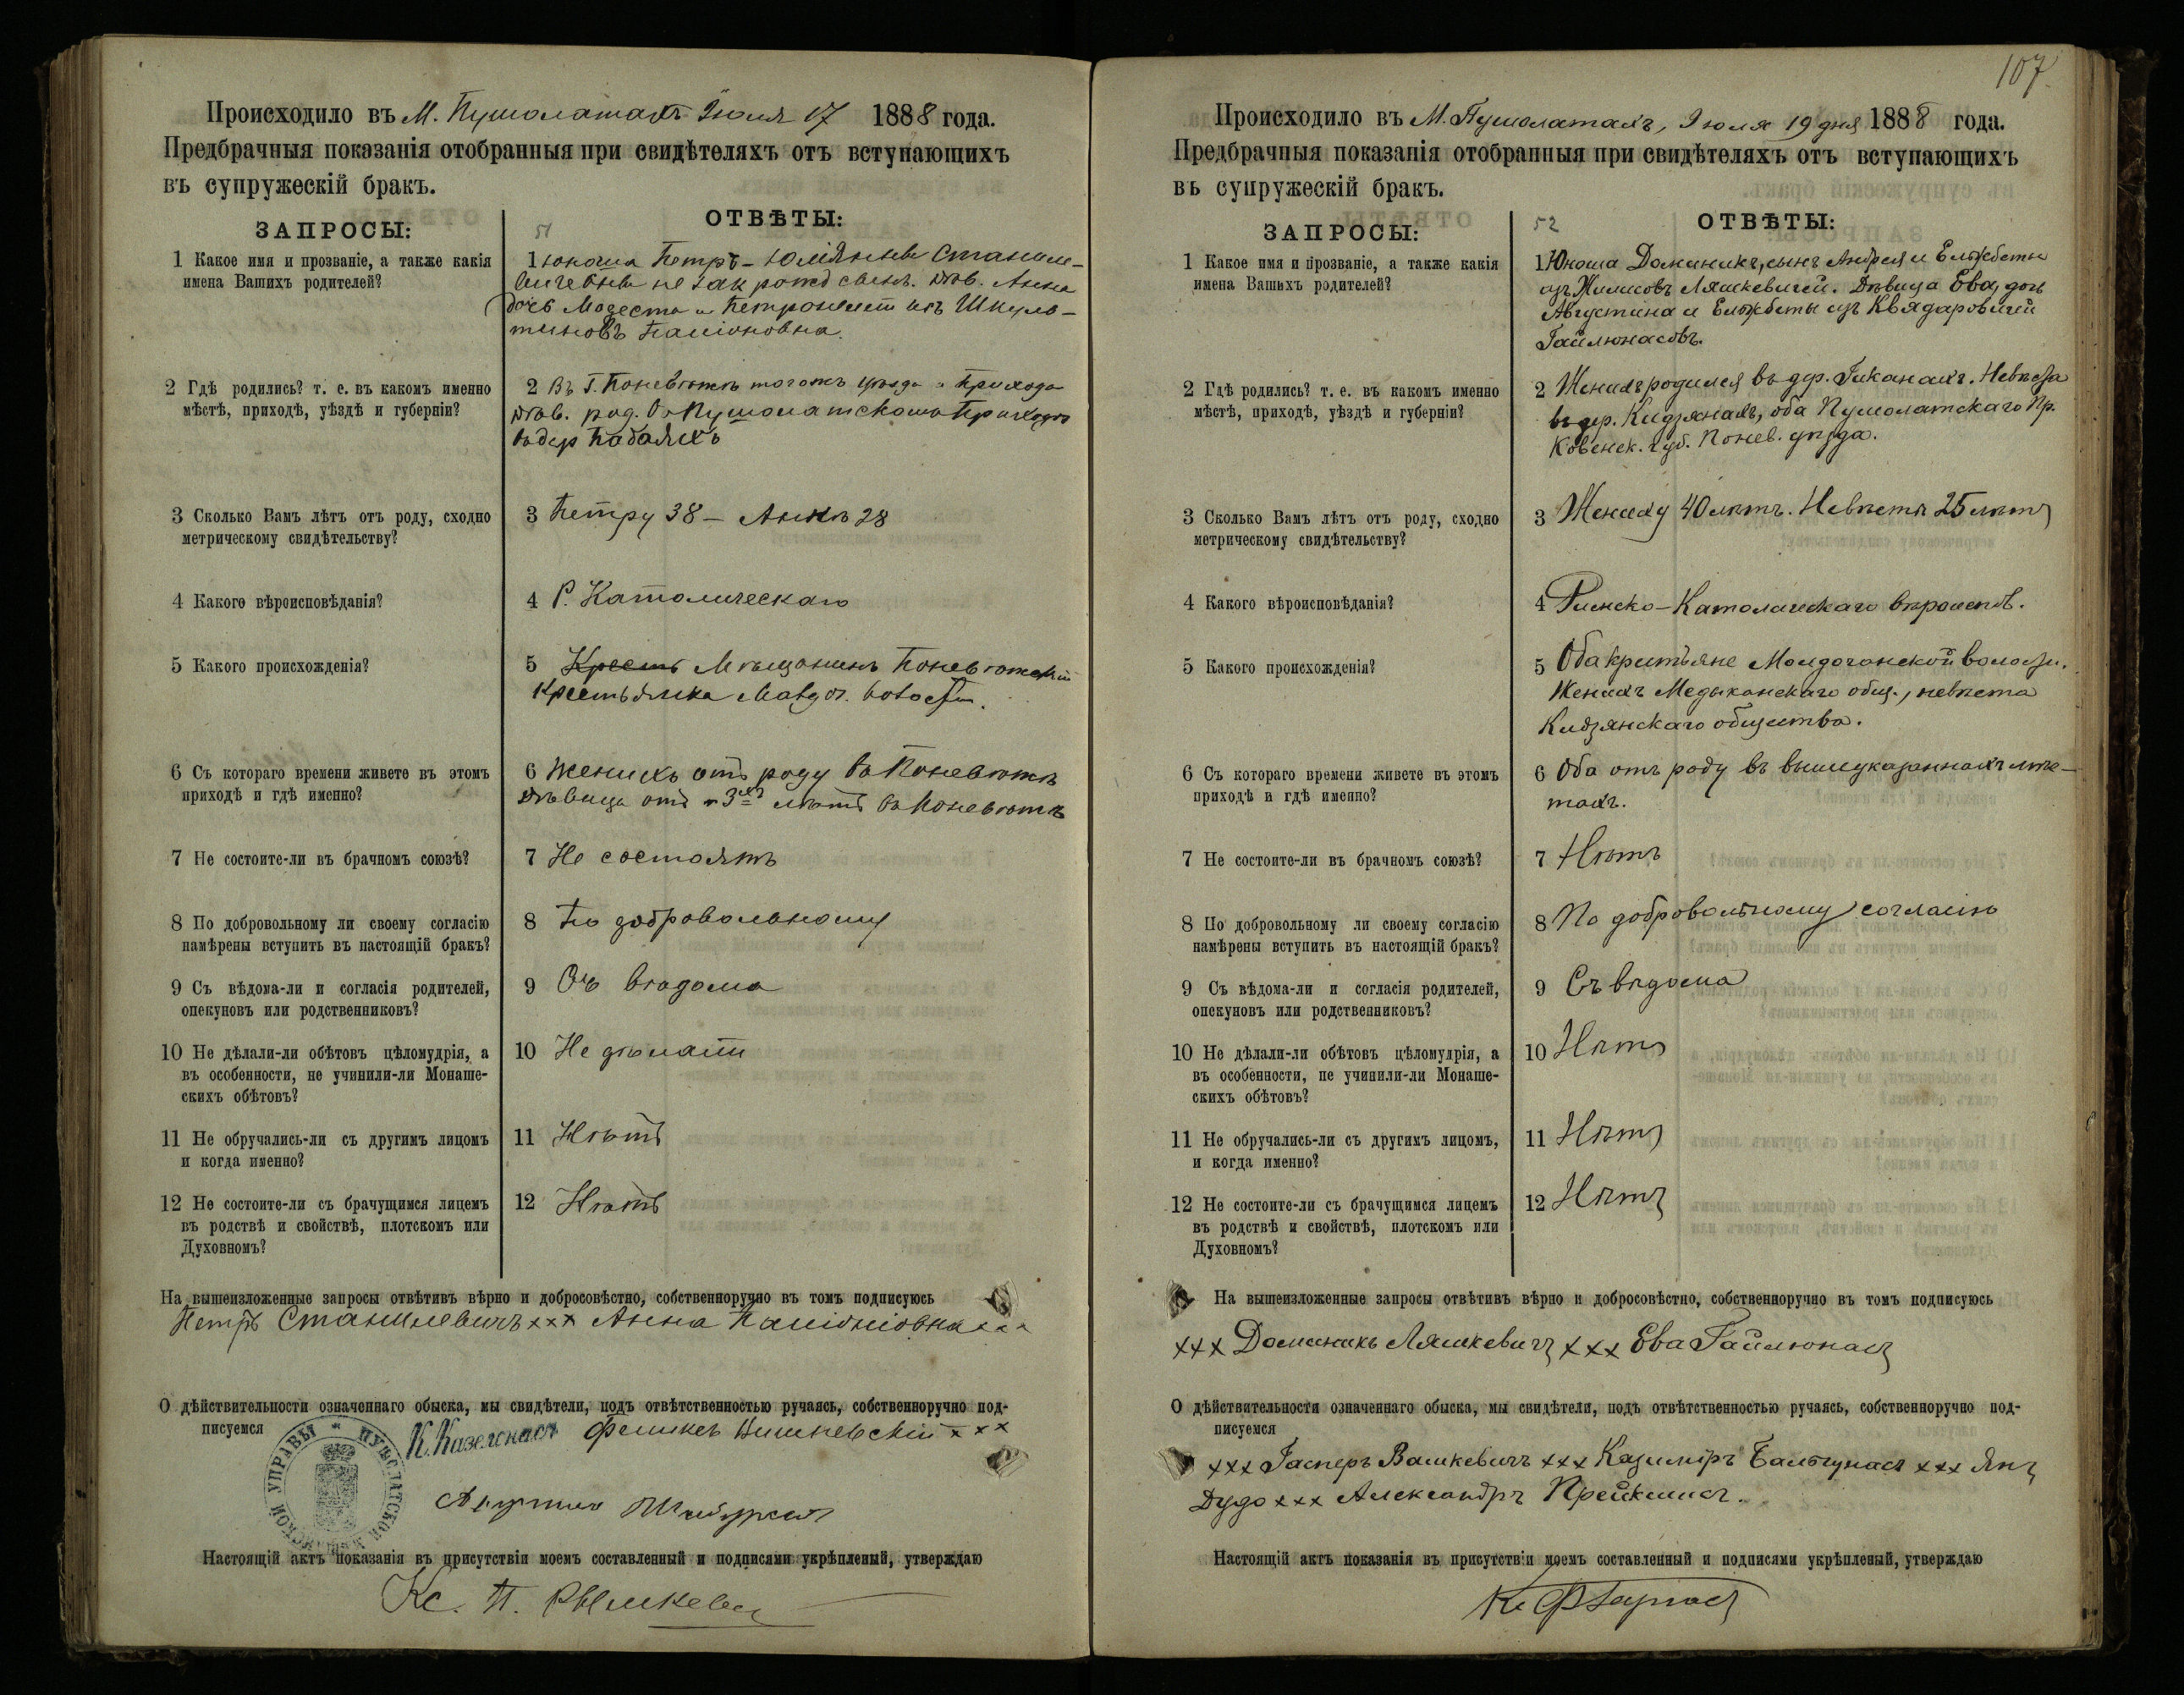 Происходило въ М. Пушолатахъ Іюля 17 1888 года.
Предбрачныя показанія отобранныя при свидѣтеляхъ отъ вступающихъ
въ супружескій бракъ.
ЗАПРОСЫ:
51
ОТВѢТЫ:
1 Какое имя и прозваніе, а также какія
имена Вашихъ родителей?
1 Юноша Петръ
дѣв. Анна
дочь Модеста и Петронели изъ
2 Гдѣ родились? т. е. въ какомъ именно
мѣстѣ, приходѣ, уѣздѣ и губерніи?
2 Въ Г. Поневѣжѣ тогожъ уѣзда и Прихода
дѣв. род. въ Пушолатскомъ Приходѣ
въ дер
3 Сколько Вамъ лѣтъ отъ роду, сходно
метрическому свидѣтельству?
3 Петру 38 — Аннѣ 28
4 Какого вѣроисповѣданія?
4 Р. Католическаго
5 Какого происхожденія?
5 Мѣщанинъ Поневѣжскій
Крестьянка волости.
6 Съ котораго времени живете въ этомъ
приходѣ и гдѣ именно?
6 Женихъ отъ роду въ Поневѣжѣ
дѣвица отъ 3хъ лѣтъ въ Поневѣжѣ
7 Не состоите-ли въ брачномъ союзѣ?
7 Не состоятъ
8 По добровольному ли своему согласію
намѣрены вступить въ настоящій бракъ?
8 По добровольному
9 Съ вѣдома-ли и согласія родителей,
опекуновъ или родственниковъ?
9 Съ вѣдома
10 Не дѣлали-ли обѣтовъ цѣломудрія, а
въ особенности, не учинили-ли Монаше-
скихъ обѣтовъ?
10 Не дѣлали
11 Не обручались-ли съ другимъ лицомъ
и когда именно?
11 Нѣтъ
12 Не состоите-ли съ брачущимся лицемъ
въ родствѣ и свойствѣ, плотскомъ или
Духовномъ?
12 Нѣтъ
На вышеизложенные запросы отвѣтивъ вѣрно и добросовѣстно, собственноручно въ томъ подписуюсь
Петръ Станилевичъ ххх Анна ххх
О дѣйствительности означеннаго обыска, мы свидѣтели, подъ отвѣтственностью ручаясь, собственноручно под-
писуемся
К. Казелюнасъ Феликсъ Вишневскій ххх
УПРАВЫ
Настоящій актъ показанія въ присутствіи моемъ составленный и подписями укрѣпленый, утверждаю
Кс. П.
107
Происходило въ М. Пушолатахъ, Іюля 19 дня 1888 года.
Предбрачныя показанія отобранныя при свидѣтеляхъ отъ вступающихъ
въ супружескій бракъ.
ЗАПРОСЫ:
52
ОТВѢТЫ:
1 Какое имя и прозваніе, а также какія
имена Вашихъ родителей?
1 Юноша Доминикъ, сынъ Андрея и Ельжбеты
изъ Жилисовъ Ляшкевичей. Дѣвица Ева, дочь
Августина и Ельжбеты изъ Квядаровичей
Гайлюнасовъ.
2 Гдѣ родились? т. е. въ какомъ именно
мѣстѣ, приходѣ, уѣздѣ и губерніи?
2 Женихъ родился въ дер. Гиканахъ. Невѣста
въ дер. Кидзянахъ, оба Пушолатскаго Пр.
Ковенск. губ. Понев. уѣзда.
3 Сколько Вамъ лѣтъ отъ роду, сходно
метрическому свидѣтельству?
3 Жениху 40 лѣтъ. Невѣстѣ 25 лѣтъ
4 Какого вѣроисповѣданія?
4 Римско-Католическаго вѣроиспов.
5 Какого происхожденія?
5 Оба крестьяне волости.
Женихъ Медыканскаго общ., невѣста
Кидзянскаго общества.
6 Съ котораго времени живете въ этомъ
приходѣ и гдѣ именно?
6 Оба отъ роду въ вышеуказанныхъ мѣс-
тахъ.
7 Не состоите-ли въ брачномъ союзѣ?
7 Нѣтъ
8 По добровольному ли своему согласію
намѣрены вступить въ настоящій бракъ?
8 По добровольному согласію
9 Съ вѣдома-ли и согласія родителей,
опекуновъ или родственниковъ?
9 Съ вѣдома
10 Не дѣлали-ли обѣтовъ цѣломудрія, а
въ особенности, не учинили-ли Монаше-
скихъ обѣтовъ?
10 Нѣтъ
11 Не обручались-ли съ другимъ лицомъ,
и когда именно?
11 Нѣтъ
12 Не состоите-ли съ брачущимся лицемъ
въ родствѣ и свойствѣ, плотскомъ или
Духовномъ?
12 Нѣтъ
На вышеизложенные запросы отвѣтивъ вѣрно и добросовѣстно, собственноручно въ томъ подписуюсь
ххх Доминикъ Ляшкевичъ ххх Ева Гайлюнасъ
О дѣйствительности означеннаго обыска, мы свидѣтели, подъ отвѣтственностью ручаясь, собственноручно под-
писуемся
ххх Гасперъ Вашкевичъ ххх Казиміръ Бальчунасъ ххх Янъ
Дудо ххх Александръ Прейкшисъ.
Настоящій актъ показанія въ присутствіи моемъ составленный и подписями укрѣпленый, утверждаю